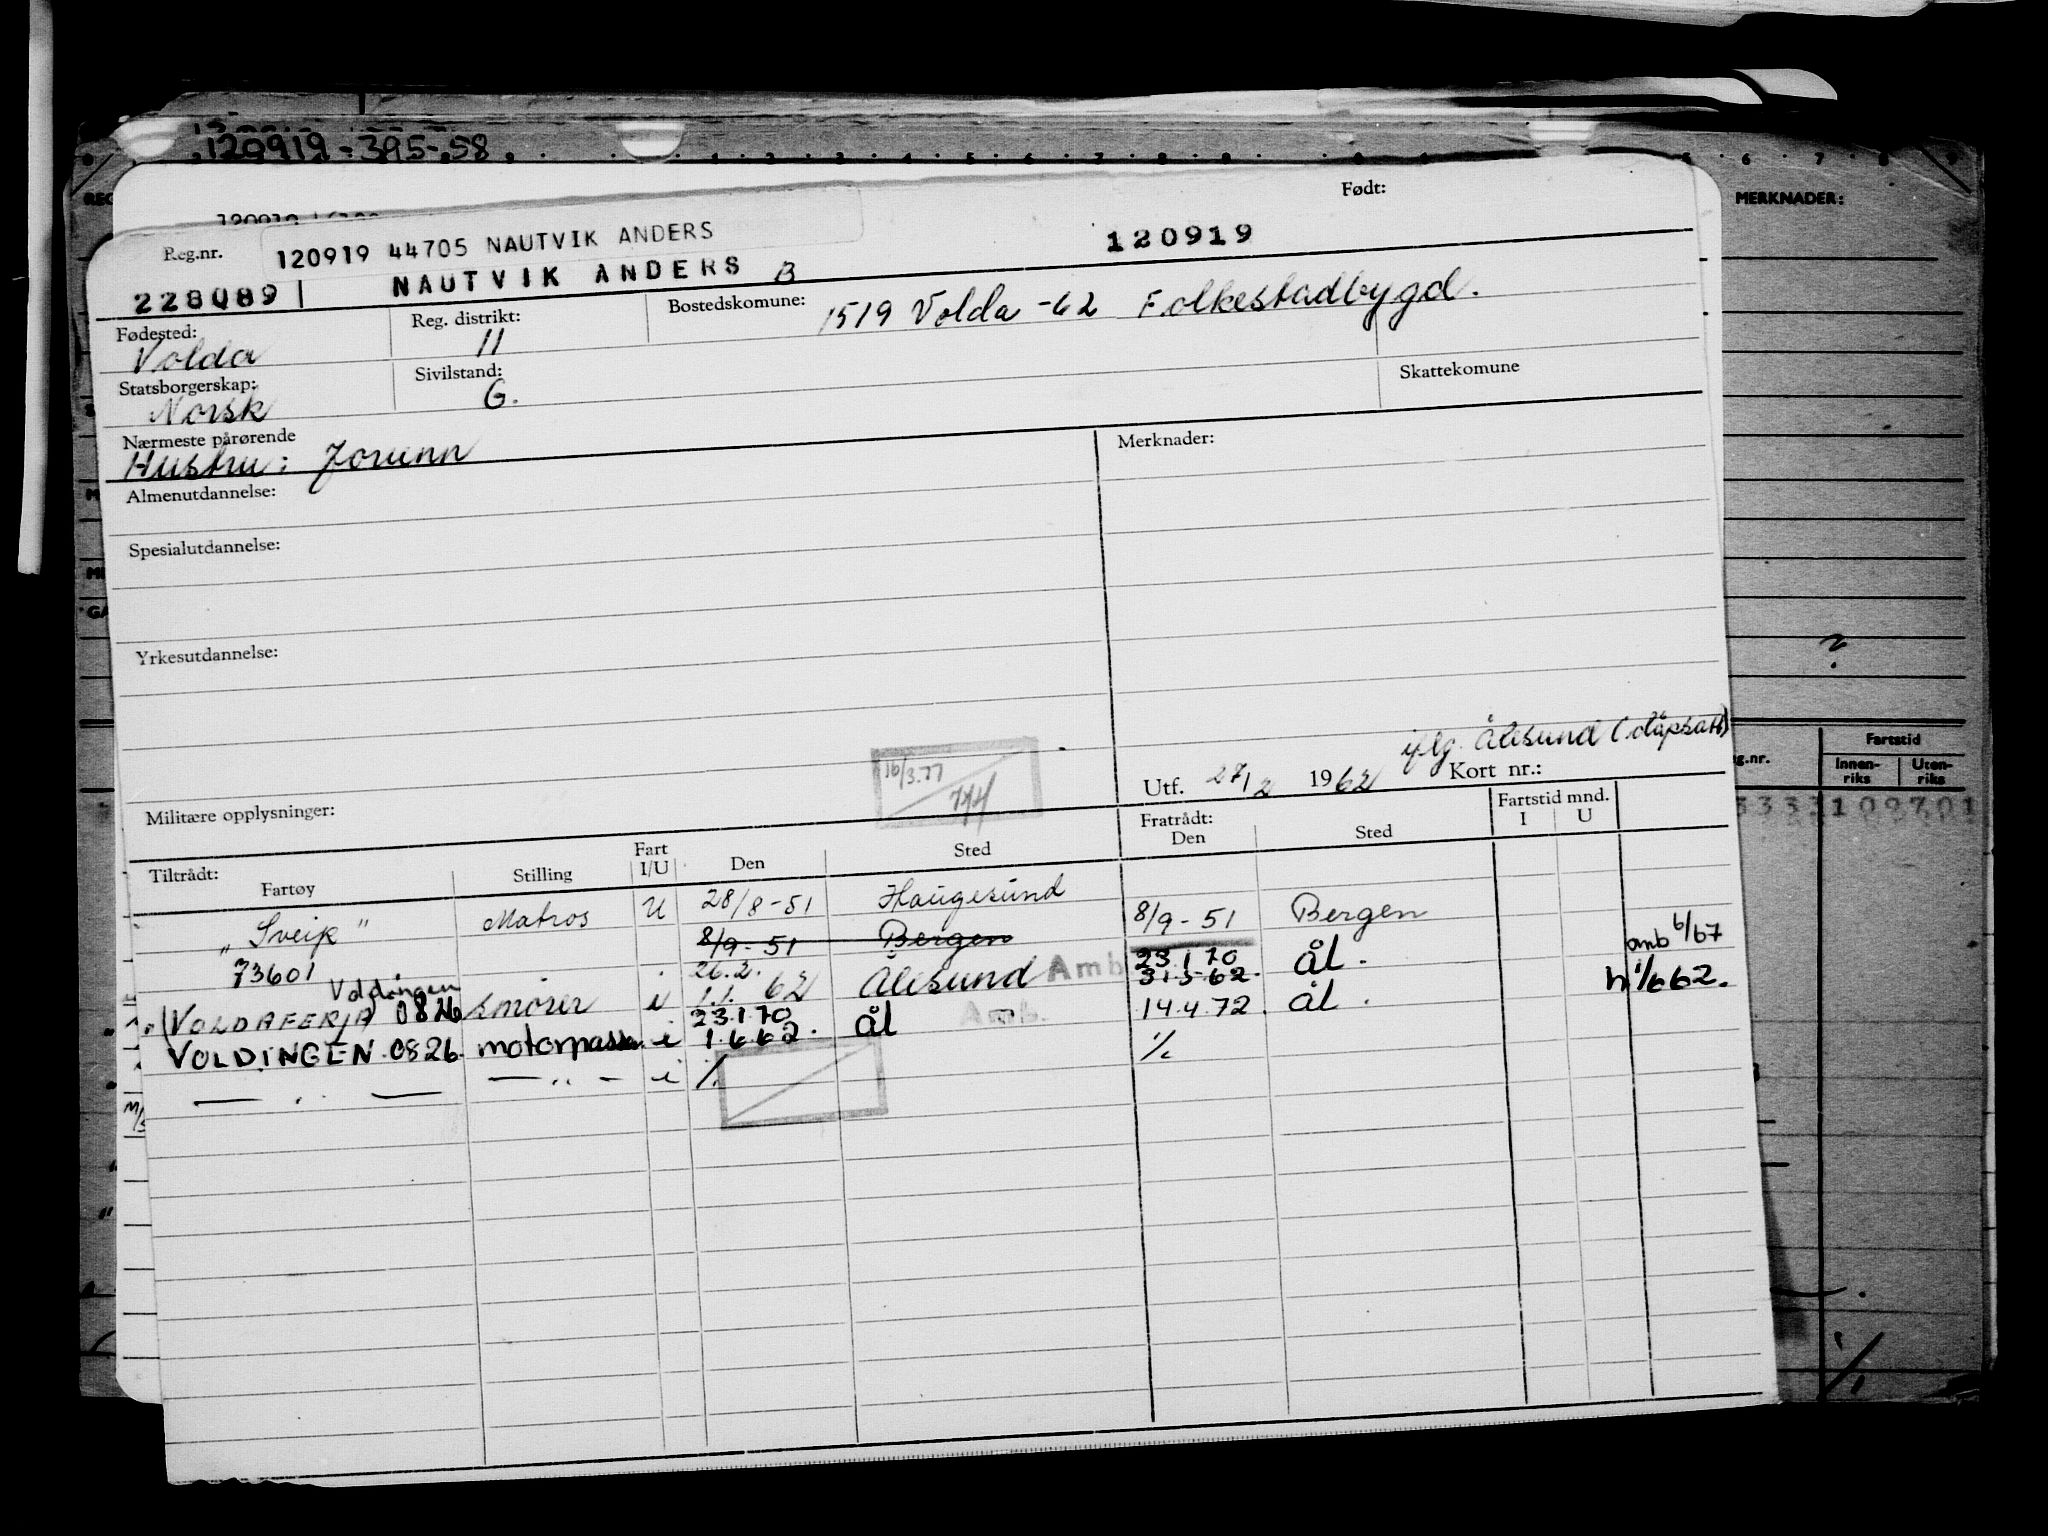 120919-395-58
MERKNADER:
Født:
Reg.nr.
120919 44705 NAUTVIK ANDERS
120919
228089 NAUTVIK ANDERS B
Fødested:
Volda
Reg. distrikt:
11
Bostedskomune:
1519 Volda -62 Folkestadbygd.
Statsborgerskap:
Norsk
Sivilstand:
G.
Skattekomune
Nærmeste pårørende
Hustru: Jorunn
Merknader:
Almenutdannelse:
Spesialutdannelse:
Yrkesutdannelse:
?
16/3.77
iflg. Ålesund (dåpsatt)
Utf. 27/2 1962 Kort nr.:
Militære opplysninger:
Tiltrådt:
Fartøy Stilling Fart I/U Den Sted
Fratrådt:
Den Sted
Fartstid mnd.
I U
Fartstid
Innen-riks Uten-riks
3333109701
"Sveip" Matros U 28/8-51 Haugesund 8/9-51 Bergen
73601 8/9-51 Bergen
amb 6/67
23.1.70
Voldingen 26.2. Amb 31.5.62. ål.
(VOLDAFERJA 0826 smører i 1.1. 62 Ålesund
n 1/6 62.
23.1.70 Amb. 14.4.72. ål.
VOLDINGEN 0826. motorpass. i 1.6.62. ål
— " — — " — i %. %